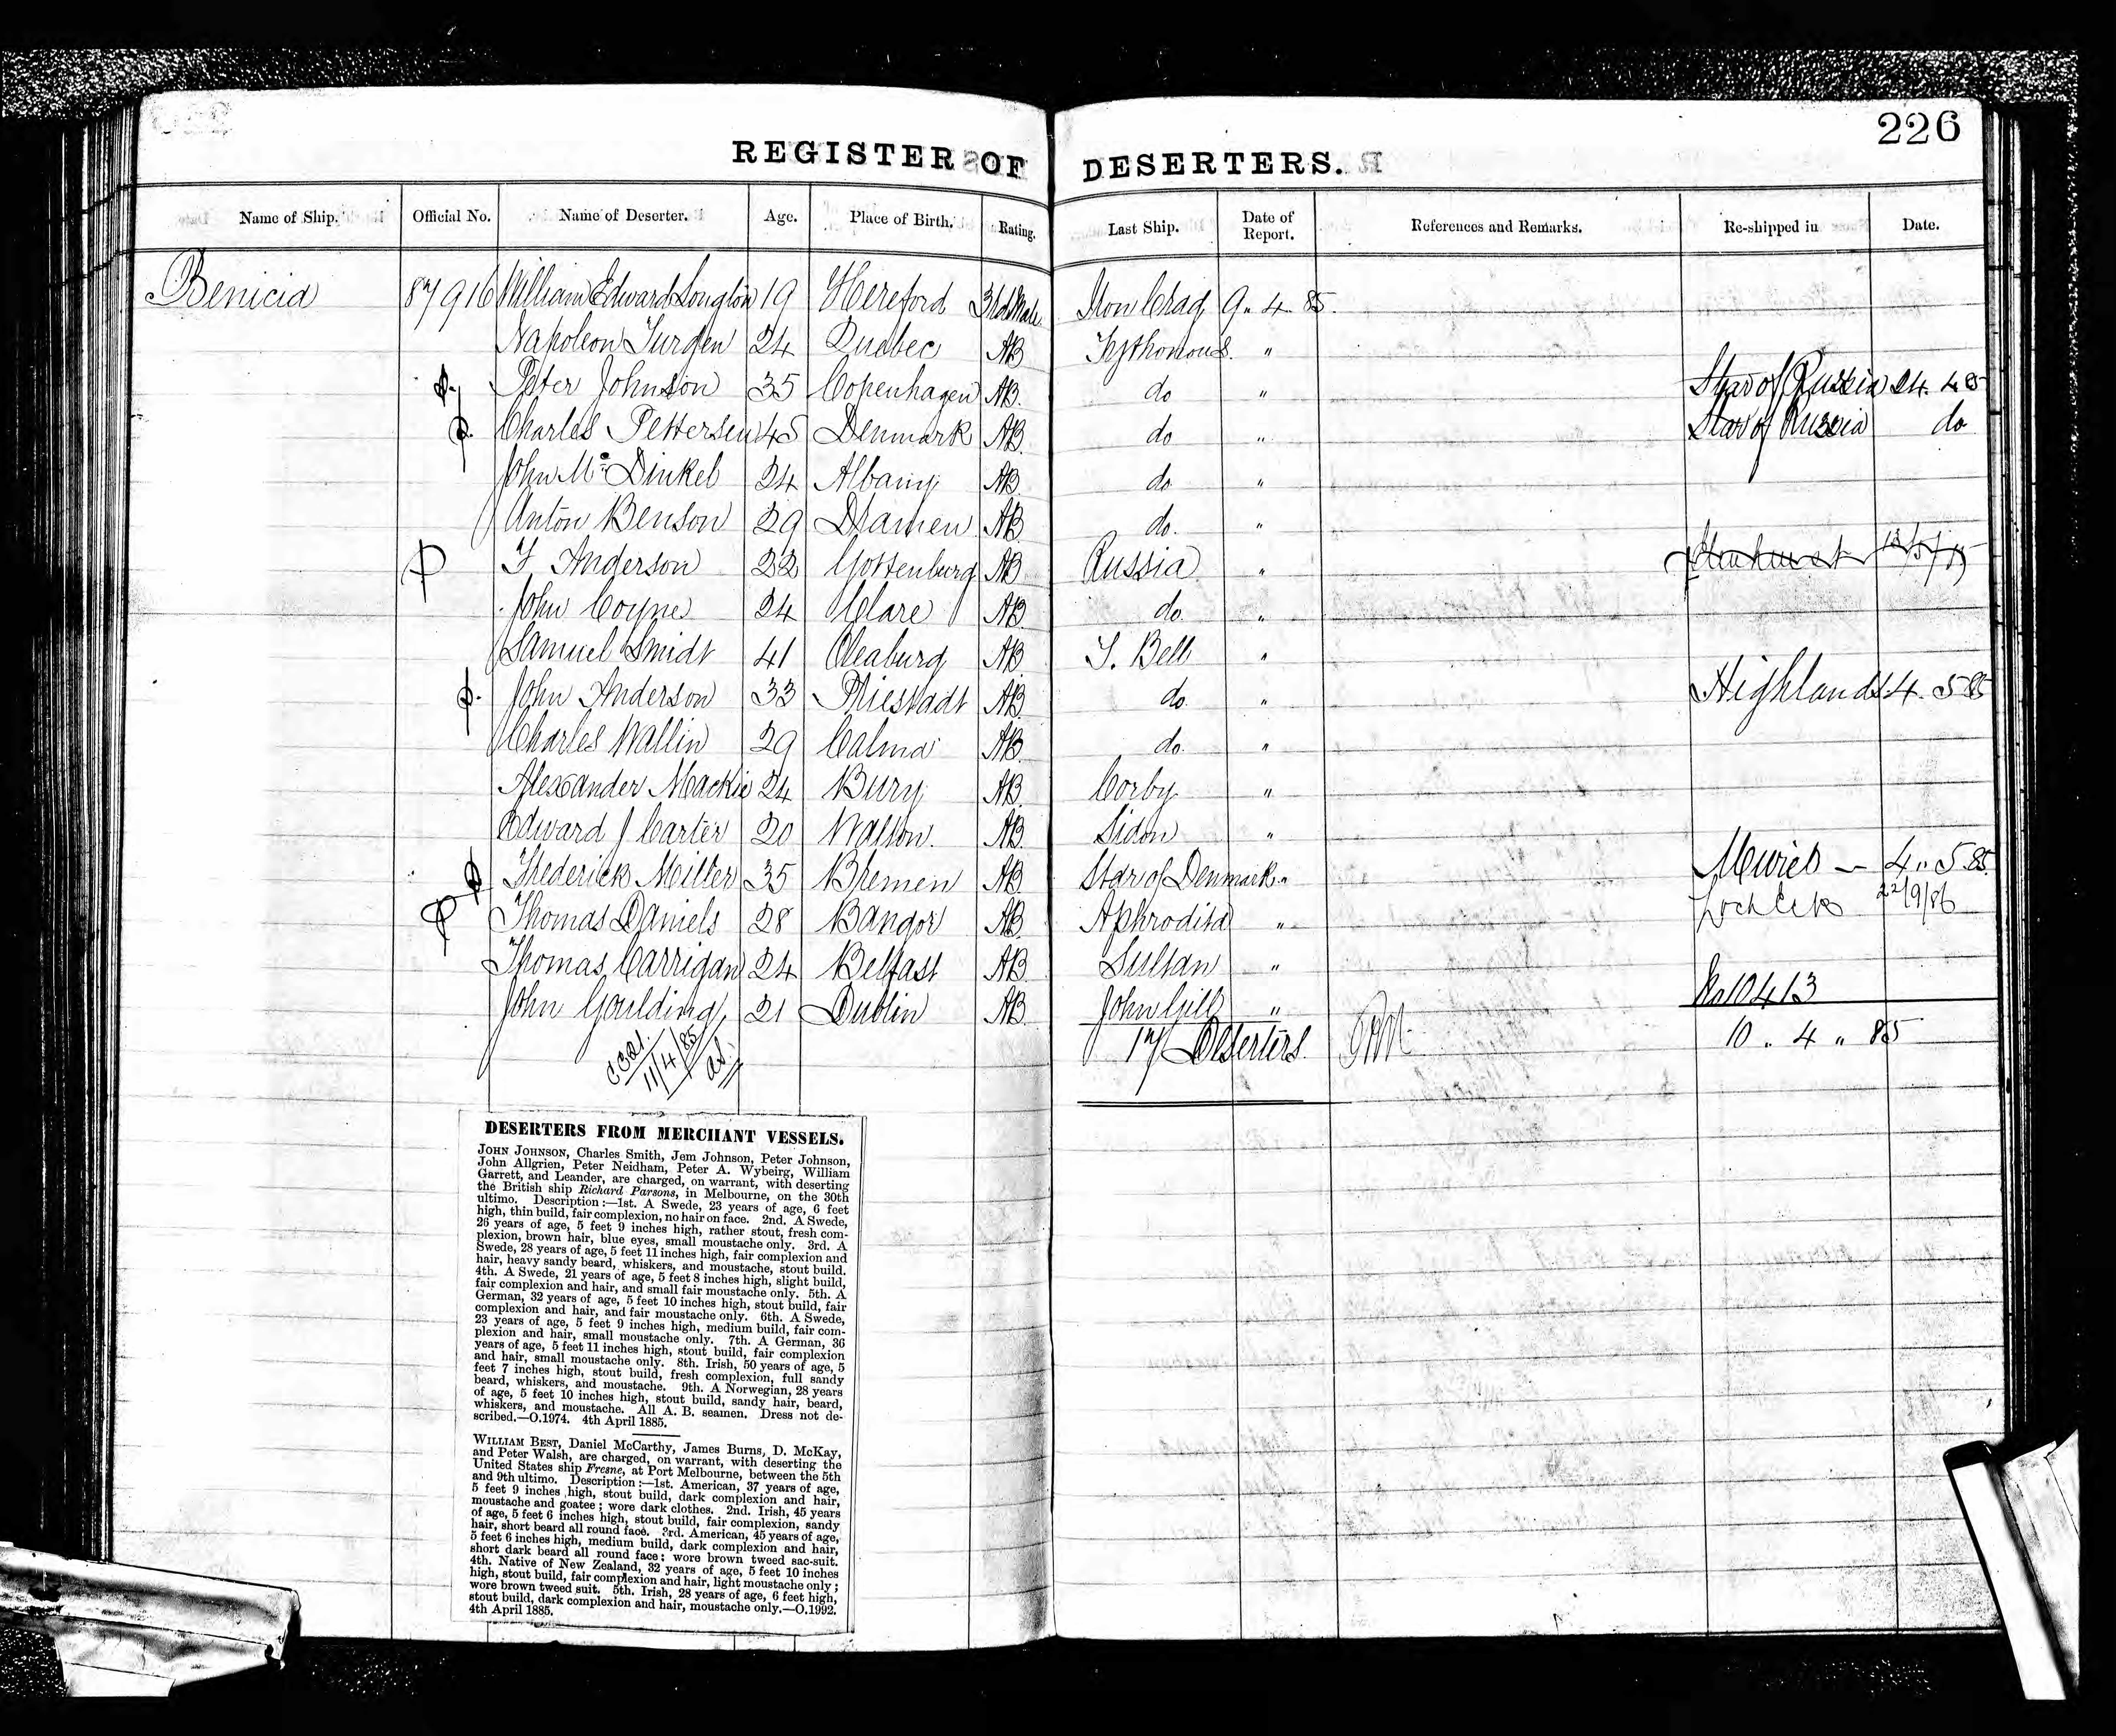 226
REGISTER OF DESERTERS.
Name of Ship. Official No. Name of Deserter. Age. Place of Birth. Rating. Last Ship. Date of Report. References and Remarks. Re-shipped in Date.
Benicia 87916 William Edward Longton 19 Hereford 3rd Mate 9. 4. 85.
Napoleon 24 Quebec AB "
Peter Johnson 35 Copenhagen AB. do " Star of Russia 24. 4 85
Charles Pettersen 45 Denmark AB. do " Star of Russia do
John Mc Dinkel 24 Albany AB do "
Anton Benson 29 AB do. "
F Anderson 22 Gottenburg AB Russia "
John Coyne 24 Clare AB do. "
Samuel Smidt 41 AB S. Bell "
John Anderson 33 AB do. " Highlands 4. 5 85
Charles Wallin 29 AB do. "
Alexander Mackie 24 Bury AB Corby "
Edward J Carter 20 Walton. AB. Sidon "
Frederick Miller 35 Bremen AB Star of Denmark " 4 " 5. 85.
Thomas Daniels 28 Bangor AB. Aphrodita " 22/9/86
Thomas Carrigan 24 Belfast AB Sultan "
John Goulding 21 Dublin AB John Gill "
10413
17 Deserters. 10 .. 4 .. 85
11/4/85
DESERTERS FROM MERCHANT VESSELS.
JOHN JOHNSON, Charles Smith, Jem Johnson, Peter Johnson,
John Allgrien, Peter Neidham, Peter A. Wybeirg, William
Garrett, and Leander, are charged, on warrant, with deserting
the British ship Richard Parsons, in Melbourne, on the 30th
ultimo. Description:—1st. A Swede, 23 years of age, 6 feet
high, thin build, fair complexion, no hair on face. 2nd. A Swede,
26 years of age, 5 feet 9 inches high, rather stout, fresh com-
plexion, brown hair, blue eyes, small moustache only. 3rd. A
Swede, 28 years of age, 5 feet 11 inches high, fair complexion and
hair, heavy sandy beard, whiskers, and moustache, stout build.
4th. A Swede, 21 years of age, 5 feet 8 inches high, slight build,
fair complexion and hair, and small fair moustache only. 5th. A
German, 32 years of age, 5 feet 10 inches high, stout build, fair
complexion and hair, and fair moustache only. 6th. A Swede,
23 years of age, 5 feet 9 inches high, medium build, fair com-
plexion and hair, small moustache only. 7th. A German, 36
years of age, 5 feet 11 inches high, stout build, fair complexion
and hair, small moustache only. 8th. Irish, 50 years of age, 5
feet 7 inches high, stout build, fresh complexion, full sandy
beard, whiskers, and moustache. 9th. A Norwegian, 28 years
of age, 5 feet 10 inches high, stout build, sandy hair, beard,
whiskers, and moustache. All A. B. seamen. Dress not de-
scribed.—O.1974. 4th April 1885.
WILLIAM BEST, Daniel McCarthy, James Burns, D. McKay,
and Peter Walsh, are charged, on warrant, with deserting the
United States ship Fresne, at Port Melbourne, between the 5th
and 9th ultimo. Description:—1st. American, 37 years of age,
5 feet 9 inches high, stout build, dark complexion and hair,
moustache and goatee; wore dark clothes. 2nd. Irish, 45 years
of age, 5 feet 6 inches high, stout build, fair complexion, sandy
hair, short beard all round face. 3rd. American, 45 years of age,
5 feet 6 inches high, medium build, dark complexion and hair,
short dark beard all round face; wore brown tweed sac-suit.
4th. Native of New Zealand, 32 years of age, 5 feet 10 inches
high, stout build, fair complexion and hair, light moustache only;
wore brown tweed suit. 5th. Irish, 28 years of age, 6 feet high,
stout build, dark complexion and hair, moustache only.—O.1992.
4th April 1885.